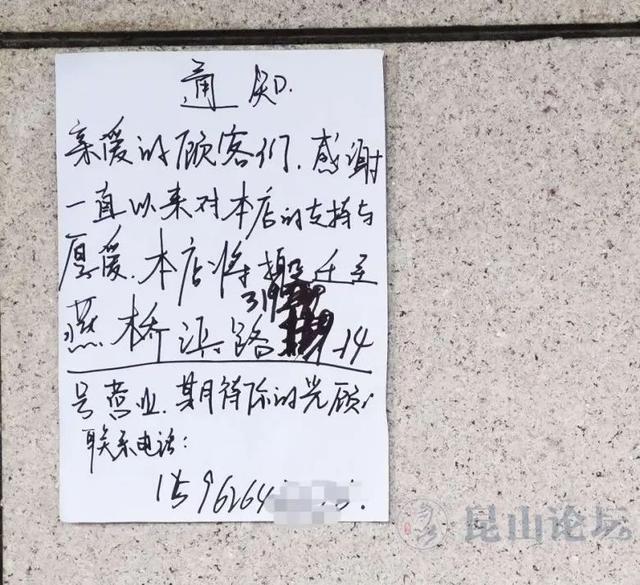 通知
亲爱的顾客们、感谢
一直以来对本店的支持与
厚爱、本店将搬迁至
燕桥浜路319-14
号营业、期待你的光顾、
联系电话:
1596264
昆山论坛